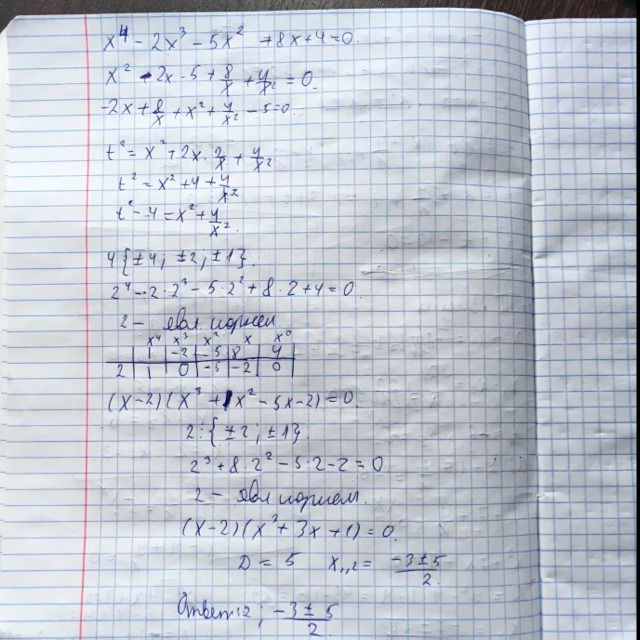 x⁴ - 2x³ - 5x² + 8x + 4 = 0.
x² - 2x - 5 + 8/x + 4/x² = 0.
-2x + 8/x + x² + 4/x² - 5 = 0.
t² = x² + 2x · 2/x + 4/x²
t² = x² + 4 + 4/x²
t² - 4 = x² + 4/x².
4 {±4; ±2; ±1}.
2⁴ - 2 · 2³ - 5 · 2² + 8 · 2 + 4 = 0
2 - явл корнем.
x⁴ x³ x² x x⁰
1 -2 -5 8 4
2 1 0 -5 -2 0
(x-2)(x³ + 1x² - 5x - 2) = 0.
2: {±2; ±1}.
2³ + 8 · 2² - 5 · 2 - 2 = 0
2 - явл корнем.
(x-2)(x² + 3x + 1) = 0.
D = 5 x₁,₂ = (-3 ± 5)/2.
Ответ: 2; (-3 ± 5)/2.